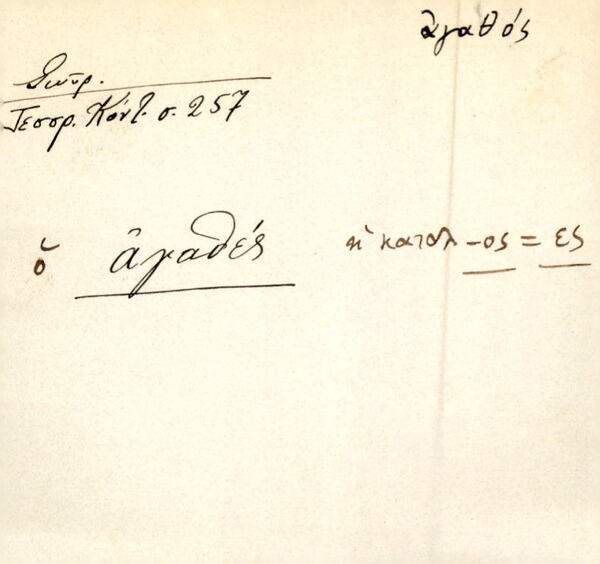 ἀγαθός
Σωπρ.
Τεσσρ. Κόντ. σ. 257
ὁ ἀγαθές ἡ καταλ -ος = ες